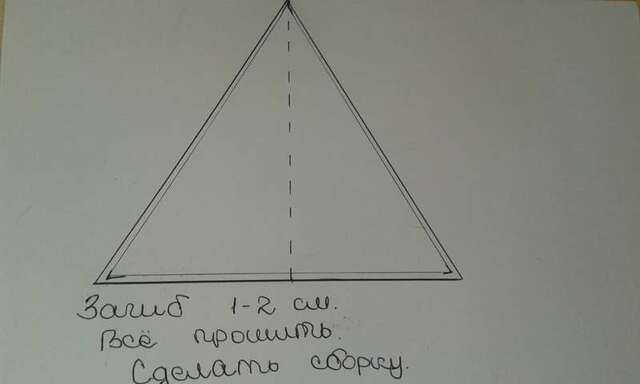 Загиб 1-2 см.
Всё прошить.
Сделать сборку.